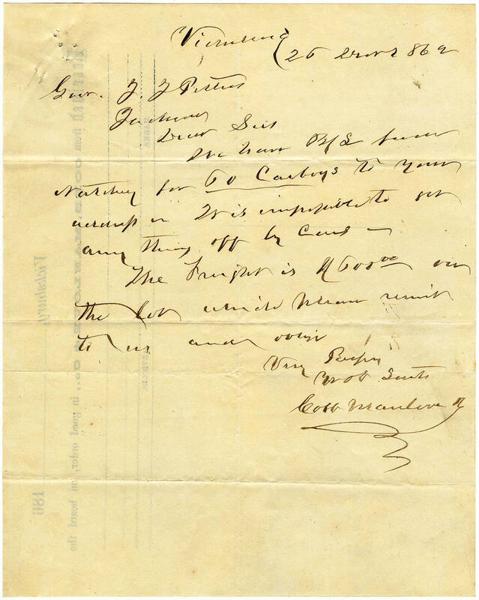 Vicksburg
26 1862
Gov. J. J. Pettus
Jackson
Dear Sir
We have B/L from
Natchez for 60 Carboys to your
address It is impossible to get
any thing off by Cars
The Freight is $600.00 on
the lot which please remit
to us and oblige
Very Respy
Your obt Servts
Cobb Manlove & Co
Vicksburg,
in good order, on board the
186